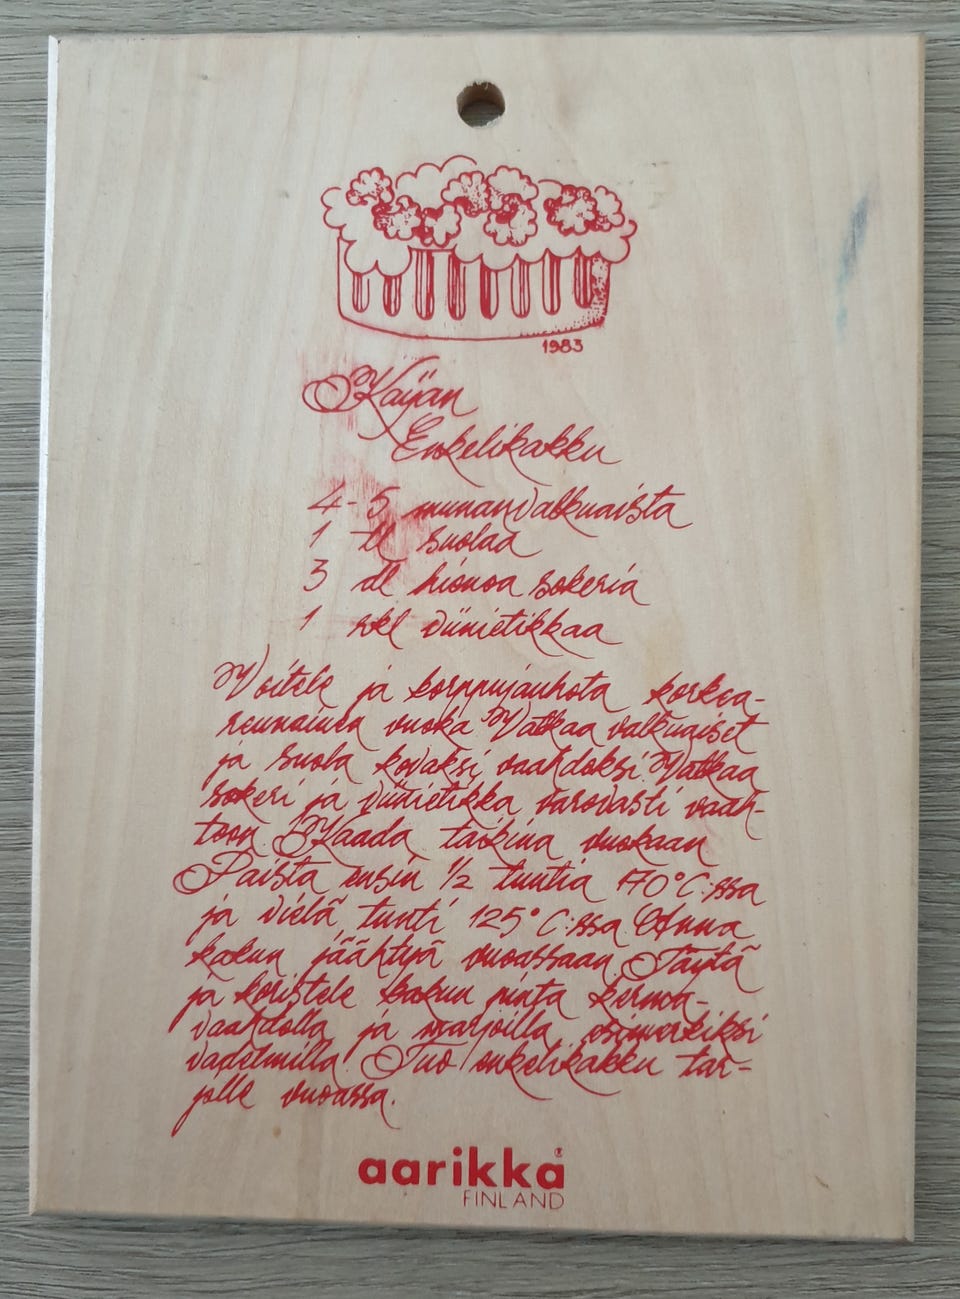 1983
Kaijan
Enkelikakku
4-5 munanvalkuaista
1 tl suolaa
3 dl hienoa sokeria
1 rkl viinietikkaa
Voitele ja korppujauhota korkea-
reunainen vuoka Vatkaa valkuaiset
ja suola kovaksi vaahdoksi. Vatkaa
sokeri ja viinietikka varovasti vaah-
toon. Kaada taikina vuokaan
Paista ensin 1/2 tuntia 170°C:ssa
ja vielä tunti 125°C:ssa Anna
kakun jäähtyä vuoassaan. Täytä
ja koristele kakun pinta kerma-
vaahdolla ja marjoilla esimerkiksi
vadelmilla. Tuo enkelikakku tar-
jolle vuoassa.
aarikka®
FINLAND